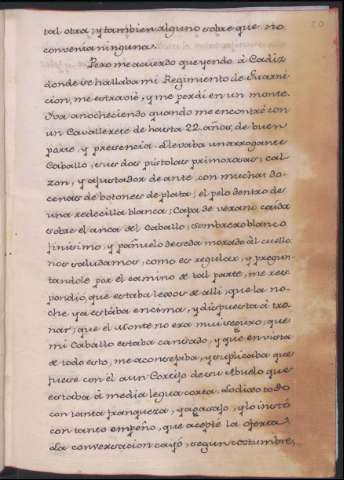 tal otra; y tambien alguno sobre que no
convenia ninguna.
Pero me acuerdo que yendo á Cadiz
donde se hallaba mi Regimiento de Guarni
cion, me estravié, y me perdí en un monte.
Iva anocheciendo quando me encontré con
un Cavallerete de hasta 22 años, de buen
porte, y presencia. Llevaba un arrogante
Caballo, sus dos pistolas primorosas, cal-
zon, y ajustador de ante con muchas do-
cenas de botones de plata; el pelo dentro de
una redecilla blanca; Capa de verano caida
sobre el anca del Caballo; sombrero blanco
finisimo, y pañuelo de seda morado al cuello.
nos saludamos, como es regular, y pregun-
tandole por el camino de tal parte, me res-
pondió, que estaba lexos de alli; que la no-
che ya estaba encima, y dispuesta á tro-
nar; que el Monte no era mui seguro, que
mi Caballo estaba cansado, y que en vista
de todo esto, me aconsejaba, y suplicaba que
fuese con él a un Cortijo de su Abuelo que
estaba á media legua corta. Lo dixo todo
con tanta franqueza, y agasajo, y lo instó
con tanto empeño, que acepté la oferta.
La conversacion cayó, segun costumbre,
20